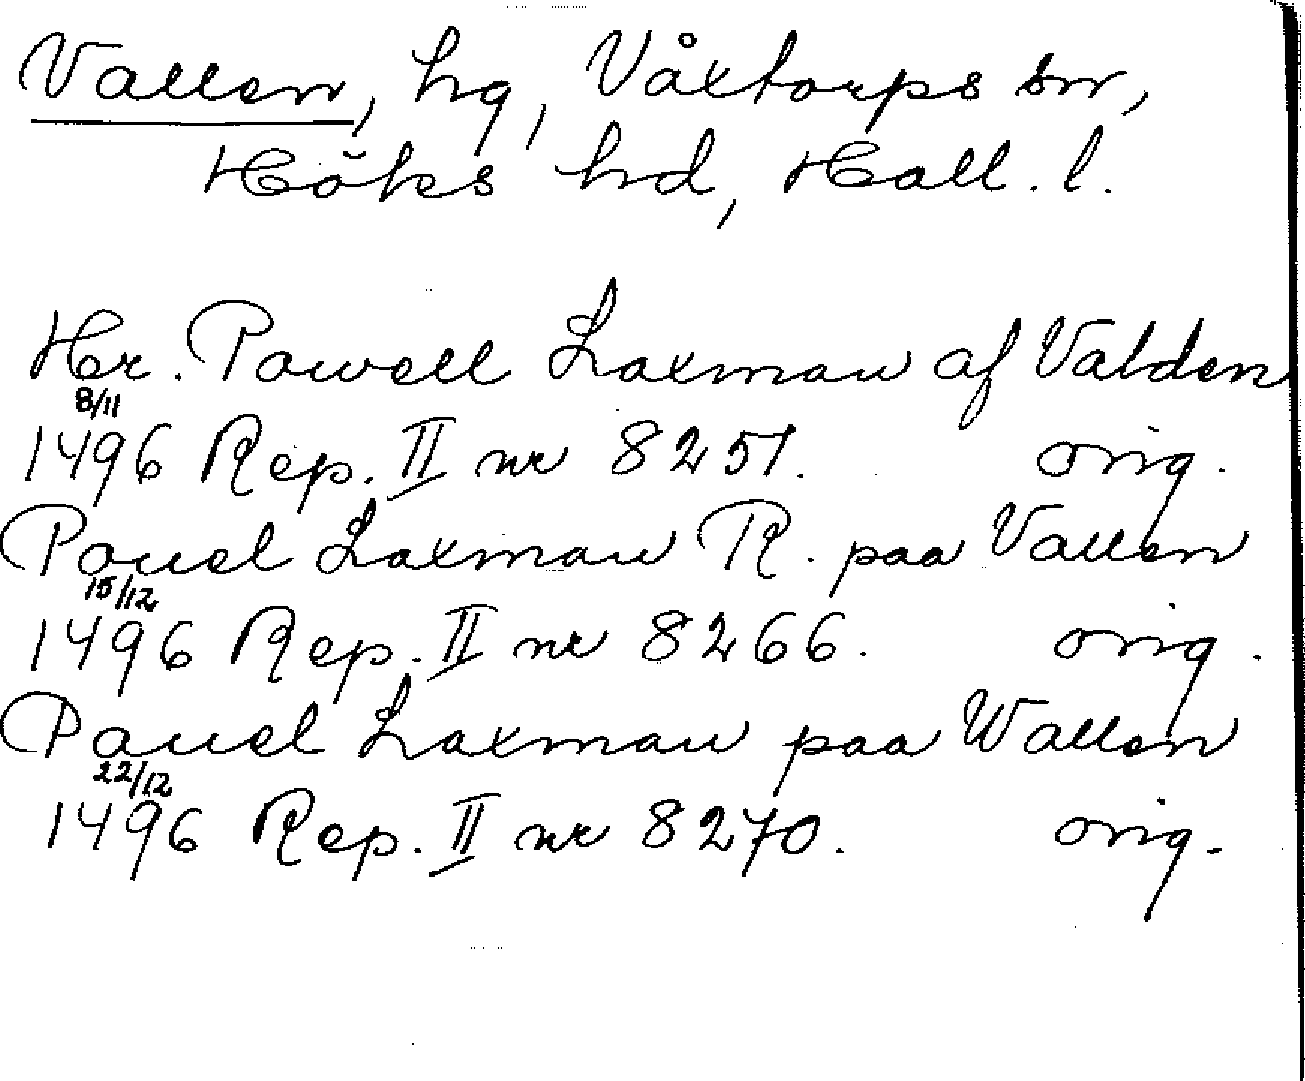 Vallen, hg, Våxtorps sn,
Höks hd, Hall. l.
Hr. Powell Laxman af Valden
8/11
1496 Rep. II nr 8251. orig.
Pouel Laxman R. paa Vallen
15/12
1496 Rep. II nr 8266. orig.
Pauel Laxman paa Wallen
22/12
1496 Rep. II nr 8270. orig.